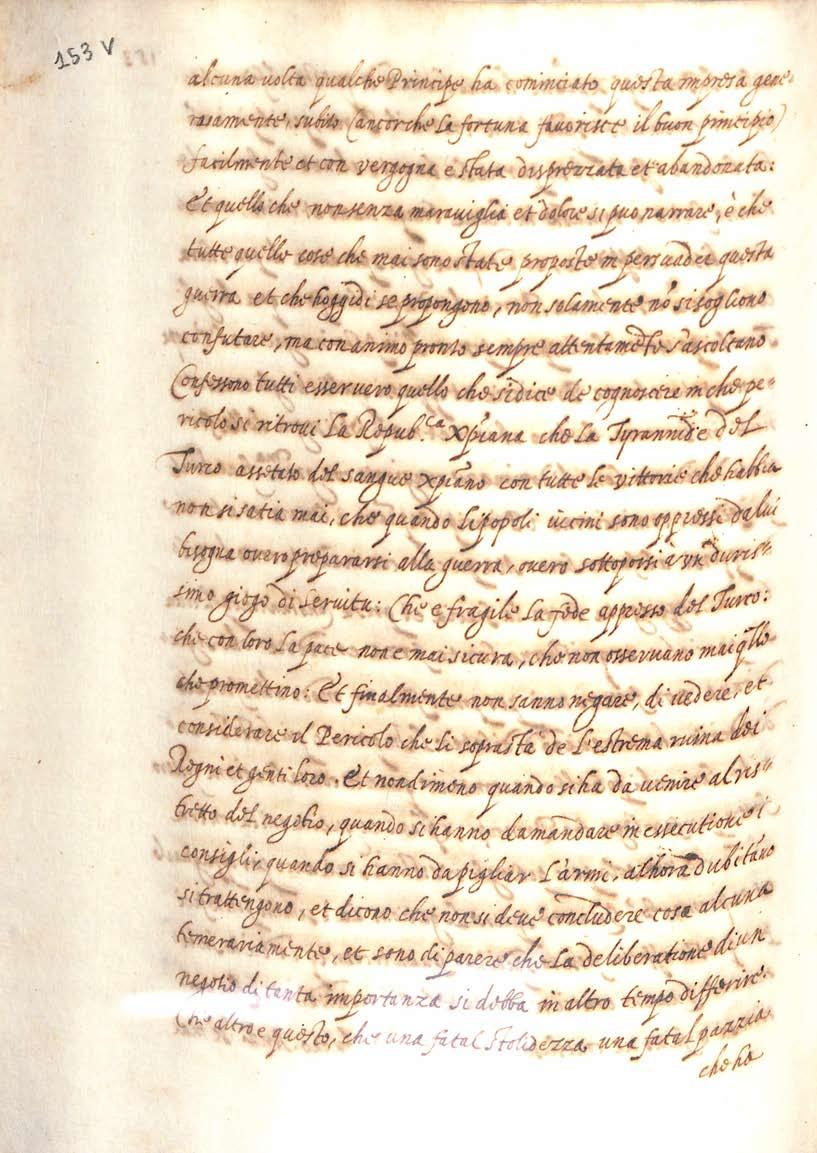 153 V
alcuna volta qualche Principe ha cominciato questa impresa gene-
rosamente, subito (ancorche la fortuna favorisce il buon principio)
facilmente et con vergogna e stata disprezzata et abandonata:
Et quello che non senza maraviglia et dolore si puo narrare, è che
tutte quelle cose che mai sono state proposte in persuader questa
guerra et che hoggidi se propongono, non solamente nõ si sogliono
confutare, ma con animo pronto sempre attentamẽte s'ascoltano
Confessono tutti esser vero quello che si dice de cognoscere in che pe-
ricolo si ritrovi la Repub.ca Xp̃iana che la Tyrannide del
Turco assetato del sangue xp̃iano con tutte le vittorie che habbia
non si satia mai, che quando li popoli vicini sono oppressi da lui
bisogna overo prepararsi alla guerra, overo sottoporsi à un duris-
simo giogo di servitu: Che e fragile la fede appresso del Turco:
che con loro la pace non e mai sicura, che non osservano mai q̃llo
che promettino: Et finalmente non sanno negare, di vedere, et
considerare il Pericolo che li soprasta de l'estrema ruina dei
Regni et genti loro. Et nondimeno quando si ha da venire al ris-
tretto del negotio, quando si hanno da mandare in essecutione i
consigli, quando si hanno da pigliar l'armi, alhora dubitano
si trattengono, et dicono che non si deve concludere cosa alcuna
temerariamente, et sono di parere che la deliberatione di un
negotio di tanta importanza si debba in altro tempo differire.
Che altro e questo, che una fatal stolidezza una fatal pazzia
che ha